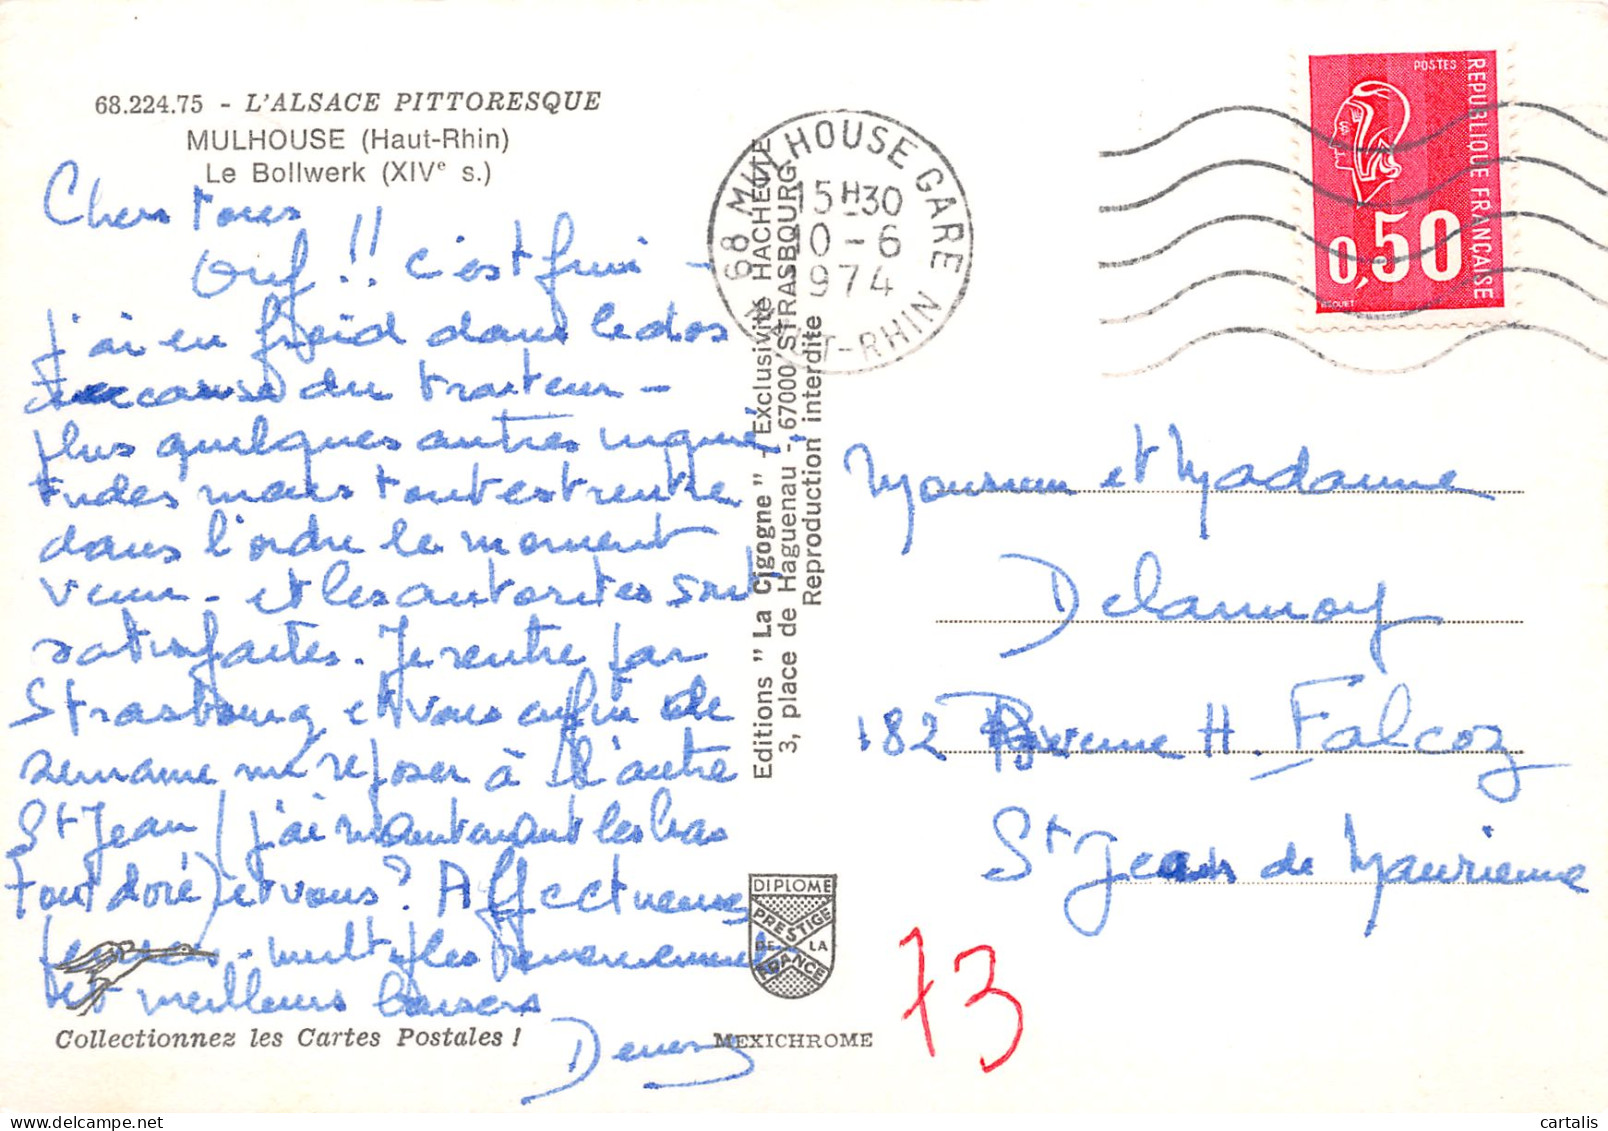 68.224.75 - L'ALSACE PITTORESQUE
MULHOUSE (Haut-Rhin)
Le Bollwerk (XIVe s.)
Chers tous
Ouf !! c'est fini -
j'ai eu froid dans le dos
à cause du traiteur -
plus quelques autres inquié-
tudes mais tout est rentré
dans l'ordre le moment
venu - et les autorités sont
satisfaites. Je rentre par
Strasbourg et vous enfin de
semaine me reposer à l'autre
St Jean (j'ai maintenant les bras
tout doré) et vous ? Affectueuses
pensées - multiples remerciements
et meilleurs baisers
Collectionnez les Cartes Postales !
Editions "La Cigogne" - Exclusivité HACHETTE
3, place de Haguenau - 67000 STRASBOURG
Reproduction interdite
DIPLOME
PRESTIGE
DE LA
FRANCE
MEXICHROME
68 MULHOUSE GARE
15H30
10-6
1974
HAUT-RHIN
POSTES
REPUBLIQUE FRANÇAISE
0,50
BEQUET
Monsieur et Madame
Delannoy
182 Avenue H. Falcoz
St Jean de Maurienne
73
cartalis